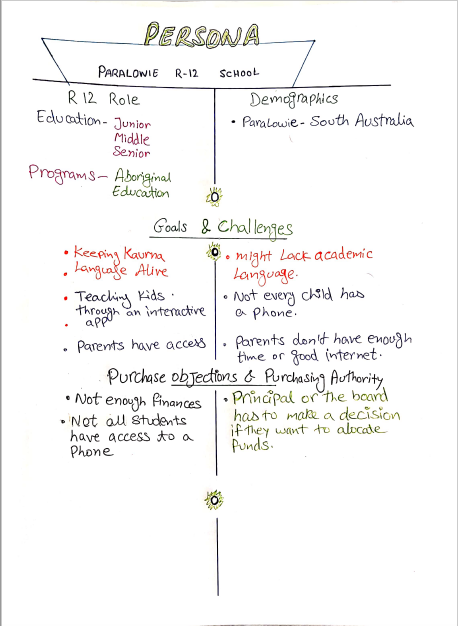 PERSONA
PARALOWIE R-12 SCHOOL
R 12 Role
Education - Junior
Middle
Senior
Programs - Aboriginal
Education
Demographics
• Paralowie - South Australia
Goals & Challenges
• Keeping Kaurna
• Language Alive
• Teaching Kids
through an interactive
• app
• Parents have access
• might Lack academic
Language.
• Not every child has
a Phone.
• Parents don't have enough
time or good internet.
Purchase objections & Purchasing Authority
• Not enough finances
• Not all Students
have access to a
Phone
• Principal or the board
has to make a decision
if they want to alocate
funds.